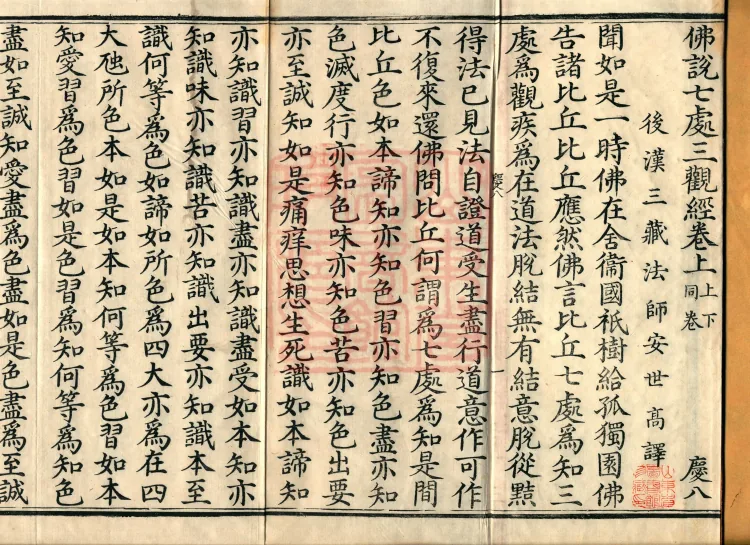 佛說七處三觀經卷上 上下同卷 慶八
後漢三藏法師安世高譯
聞如是一時佛在舍衞國祇樹給孤獨園佛
告諸比丘比丘應然佛言比丘七處爲知三
處爲觀疾爲在道法脫結無有結意脫從黠
慶八 一
得法已見法自證道受生盡行道意作可作
不復來還佛問比丘何謂爲七處爲知是間
比丘色如本諦知亦知色習亦知色盡亦知
色滅度行亦知色味亦知色苦亦知色出要
亦至誠知如是痛痒思想生死識如本諦知
亦知識習亦知識盡亦知識盡受如本知亦
知識味亦知識苦亦知識出要亦知識本至
識何等爲色如諦如所色爲四大亦爲在四
大所色本如是如本知何等爲色習如本
知愛習爲色習如是色習爲知何等爲知色
盡如至誠知愛盡爲色盡如是色盡爲至誠